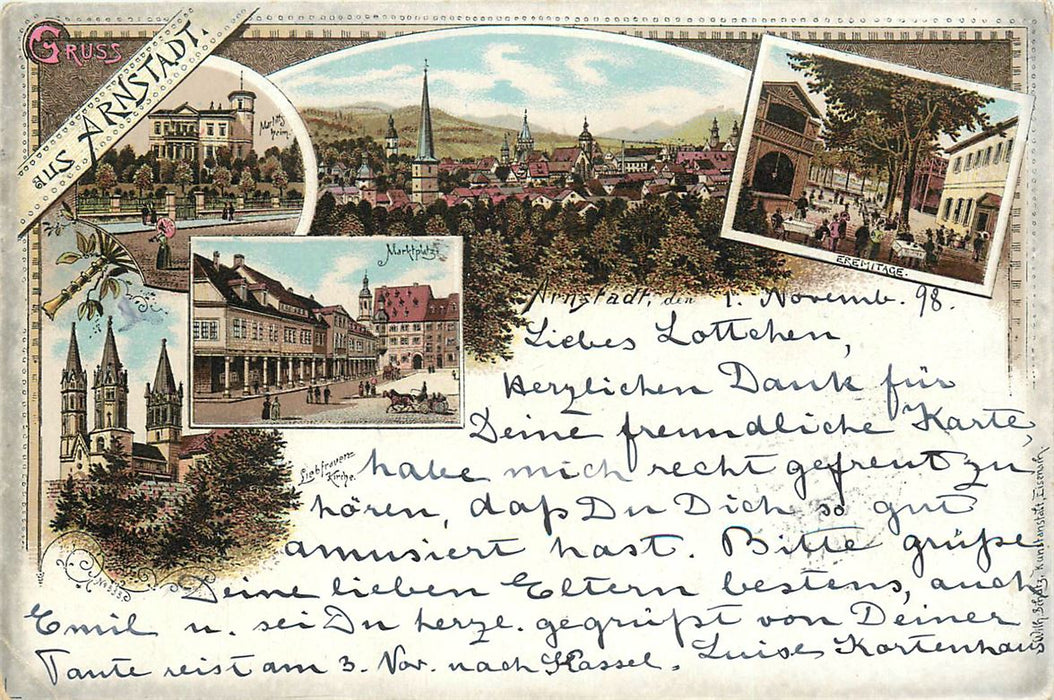 GRUSS
aus ARNSTADT.
Marlitts
heim.
Marktplatz.
EREMITAGE.
Liebfrauen-
Kirche.
Arnstadt, den 1. Novemb. 98.
Liebes Lottchen,
Herzlichen Dank für
Deine freundliche Karte,
habe mich recht gefreut zu
hören, daß Du Dich so gut
amusiert hast. Bitte grüße
Deine lieben Eltern bestens, auch
Emil u. sei Du herzl. gegrüßt von Deiner
Tante reist am 3. Nov. nach Kassel. Luise Kortenhaus
Kunstanstalt, Eisenach.